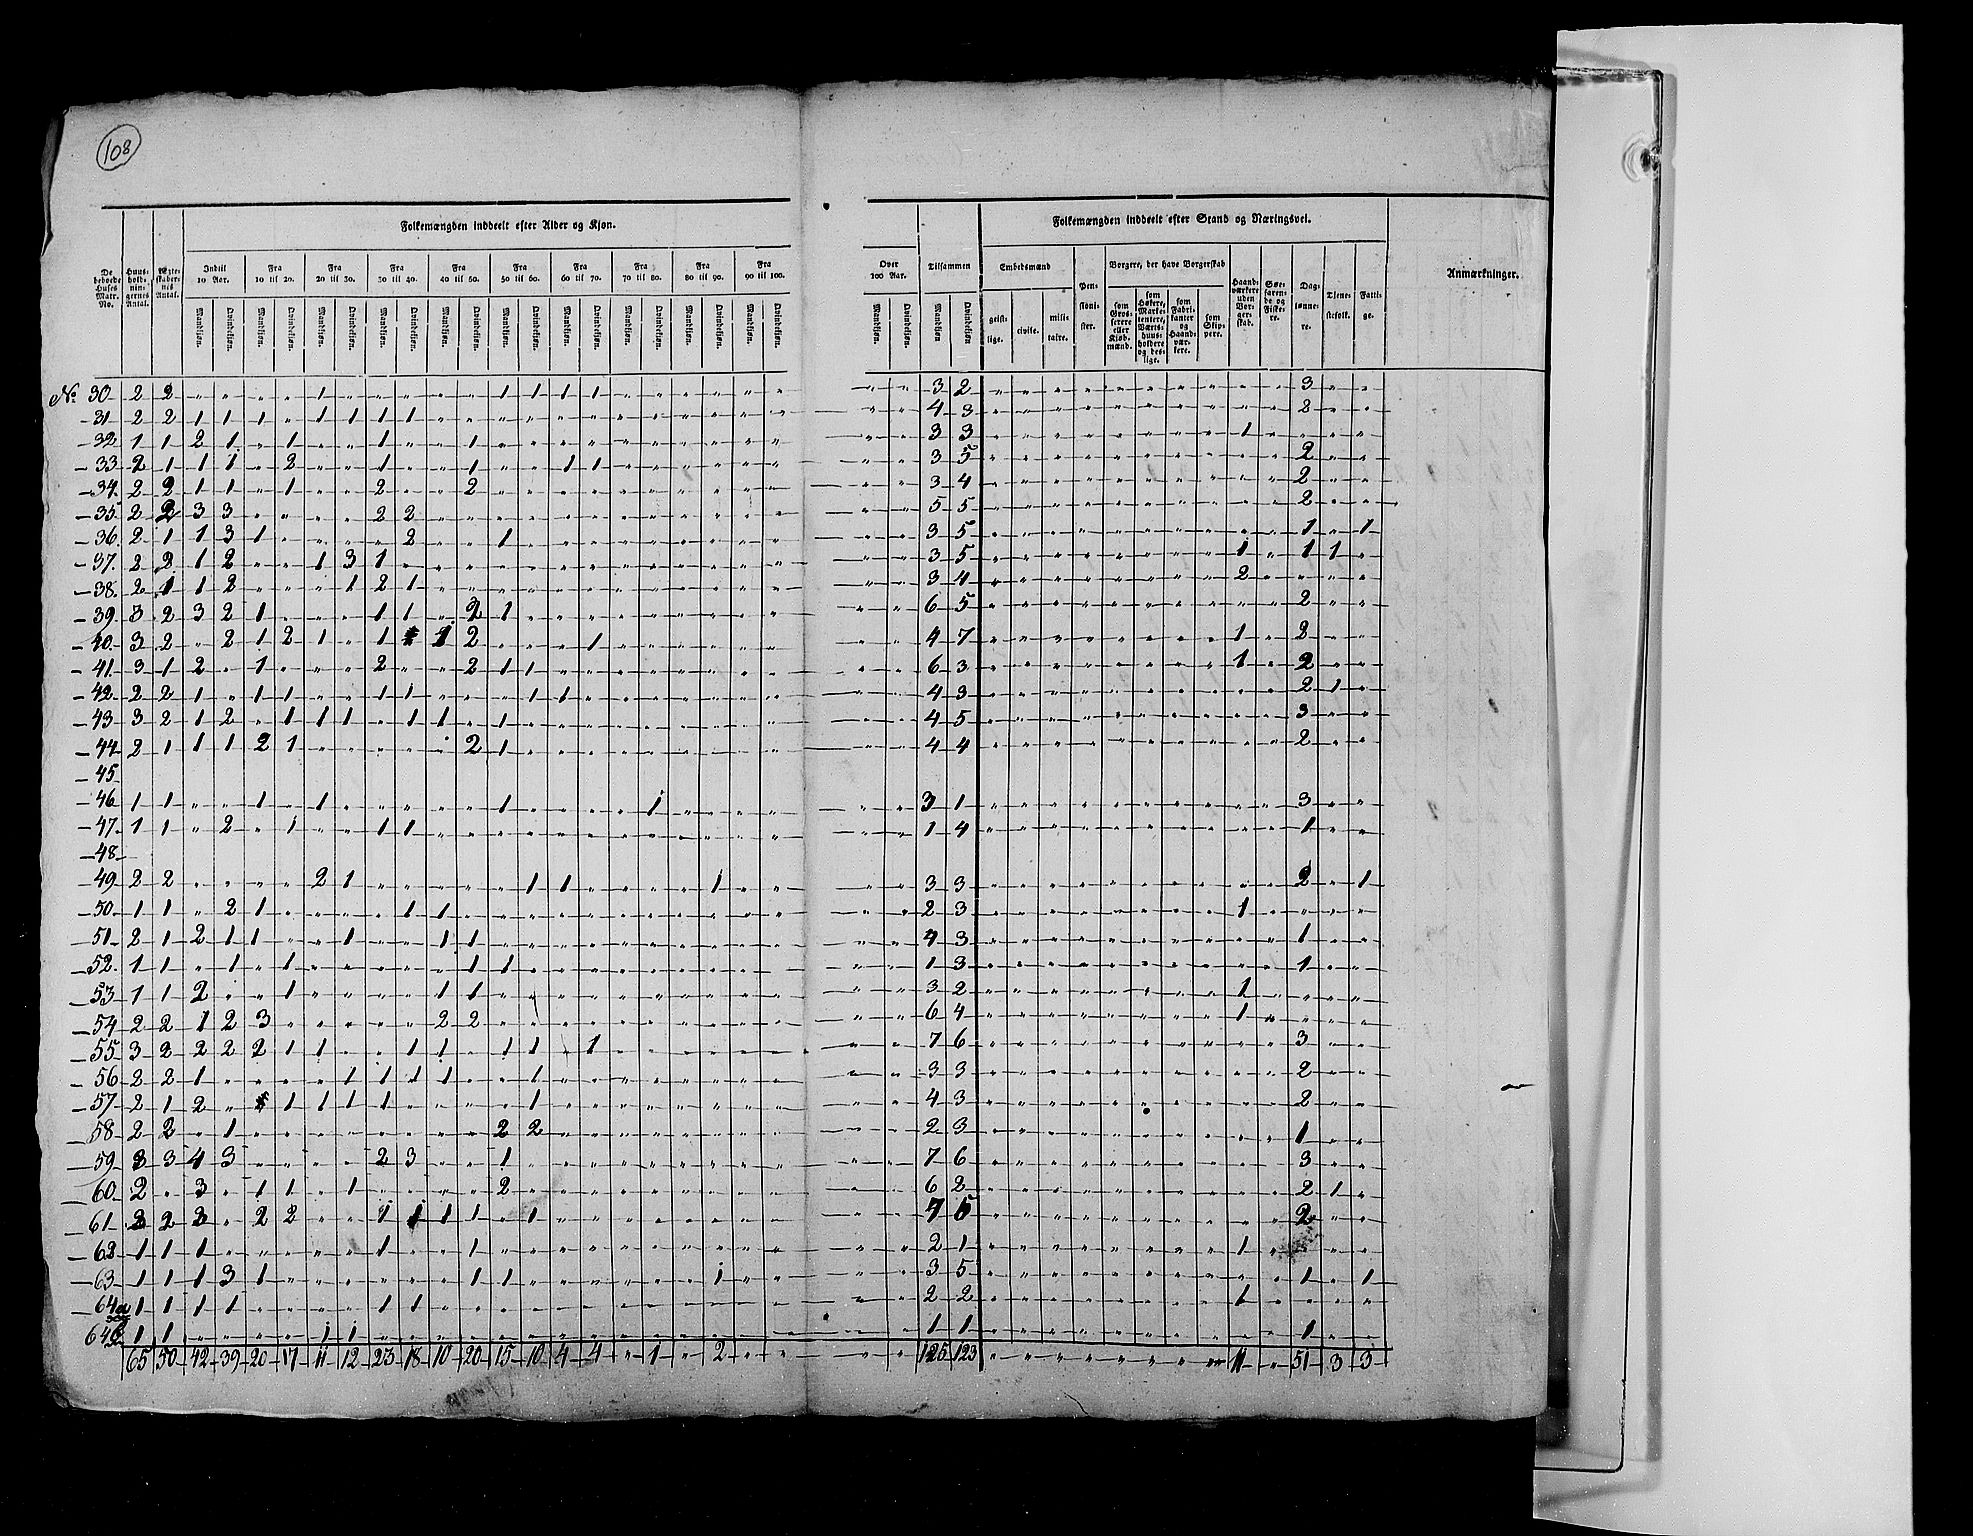 108
Folkemængden inddeelt efter Alder og Kjøn.
Folkemængden inddeelt efter Stand og Næringsvei.
De beboede Huses Matr. No. Huusholdningernes Antal. Ægteskabernes Antal. Indtil 10 Aar. Fra 10 til 20. Fra 20 til 30. Fra 30 til 40. Fra 40 til 50. Fra 50 til 60. Fra 60 til 70. Fra 70 til 80. Fra 80 til 90. Fra 90 til 100. Over 100 Aar. Tilsammen Embedsmænd Pensionister. Borgere, der have Borgerskab Haandværkere uden Borgerskab. Søefarende og Fiskere. Daglønnere. Tjenestefolk. Fattige. Anmærkninger.
Mandkjøn. Qvindekjøn. Mandkjøn. Qvindekjøn. Mandkjøn. Qvindekjøn. Mandkjøn. Qvindekjøn. Mandkjøn. Qvindekjøn. Mandkjøn. Qvindekjøn. Mandkjøn. Qvindekjøn. Mandkjøn. Qvindekjøn. Mandkjøn. Qvindekjøn. Mandkjøn. Qvindekjøn. Mandkjøn. Qvindekjøn. Mandkjøn Qvindekjøn geistlige. civile. militaire. som Grosserere eller Kjøbmænd. som Høkere, Marketentere, Værtshuusholdere og deslige. som Fabrikanter og Haandværkere. som Skippere.
No. 30 2 2 1 1 1 1 1 3 2 3
31 2 2 1 1 1 1 1 1 1 4 3 2
32 1 1 2 1 1 1 1 3 3 1
33 2 1 1 1 2 1 1 1 1 3 5 2
34 2 2 1 1 1 2 2 3 4 2
35 2 2 3 3 2 2 5 5 2
36 2 1 1 3 1 2 1 3 5 1 1
37 2 2 1 2 1 3 1 3 5 1 1 1
38 2 1 1 2 1 2 1 3 4 2
39 3 2 3 2 1 1 1 2 1 6 5 2
40 3 2 2 1 2 1 1 1 2 1 4 7 1 2
41 3 1 2 1 2 2 1 1 6 3 1 2
42 2 2 1 1 1 1 1 1 1 4 3 2 1
43 3 2 1 2 1 1 1 1 1 1 4 5 3
44 2 1 1 1 2 1 2 1 4 4 2
45
46 1 1 1 1 1 1 3 1 3
47 1 1 2 1 1 1 1 4 1
48
49 2 2 2 1 1 1 1 3 3 2 1
50 1 1 2 1 1 1 2 3 1
51 2 1 2 1 1 1 1 1 4 3 1
52 1 1 1 1 1 1 1 3 1
53 1 1 2 1 1 1 3 2 1
54 2 2 1 2 3 2 2 6 4 1
55 3 2 2 2 2 1 1 1 1 1 1 1 7 6 3
56 2 2 1 1 1 1 1 1 3 3 2
57 2 1 2 1 1 1 1 1 4 3 2
58 2 2 1 2 2 2 3 1
59 3 3 4 3 2 3 1 7 6 3
60 2 3 1 1 1 2 6 2 2 1
61 3 2 3 2 2 1 1 1 1 1 7 5 2
62 1 1 1 1 1 2 1 1
63 1 1 1 3 1 1 1 1 3 5 1 1
64a 1 1 1 1 1 1 2 2 1
64 1 1 1 1 1 1 1
65 50 42 39 20 17 11 12 23 18 10 20 15 10 4 4 1 2 125 123 11 51 3 3